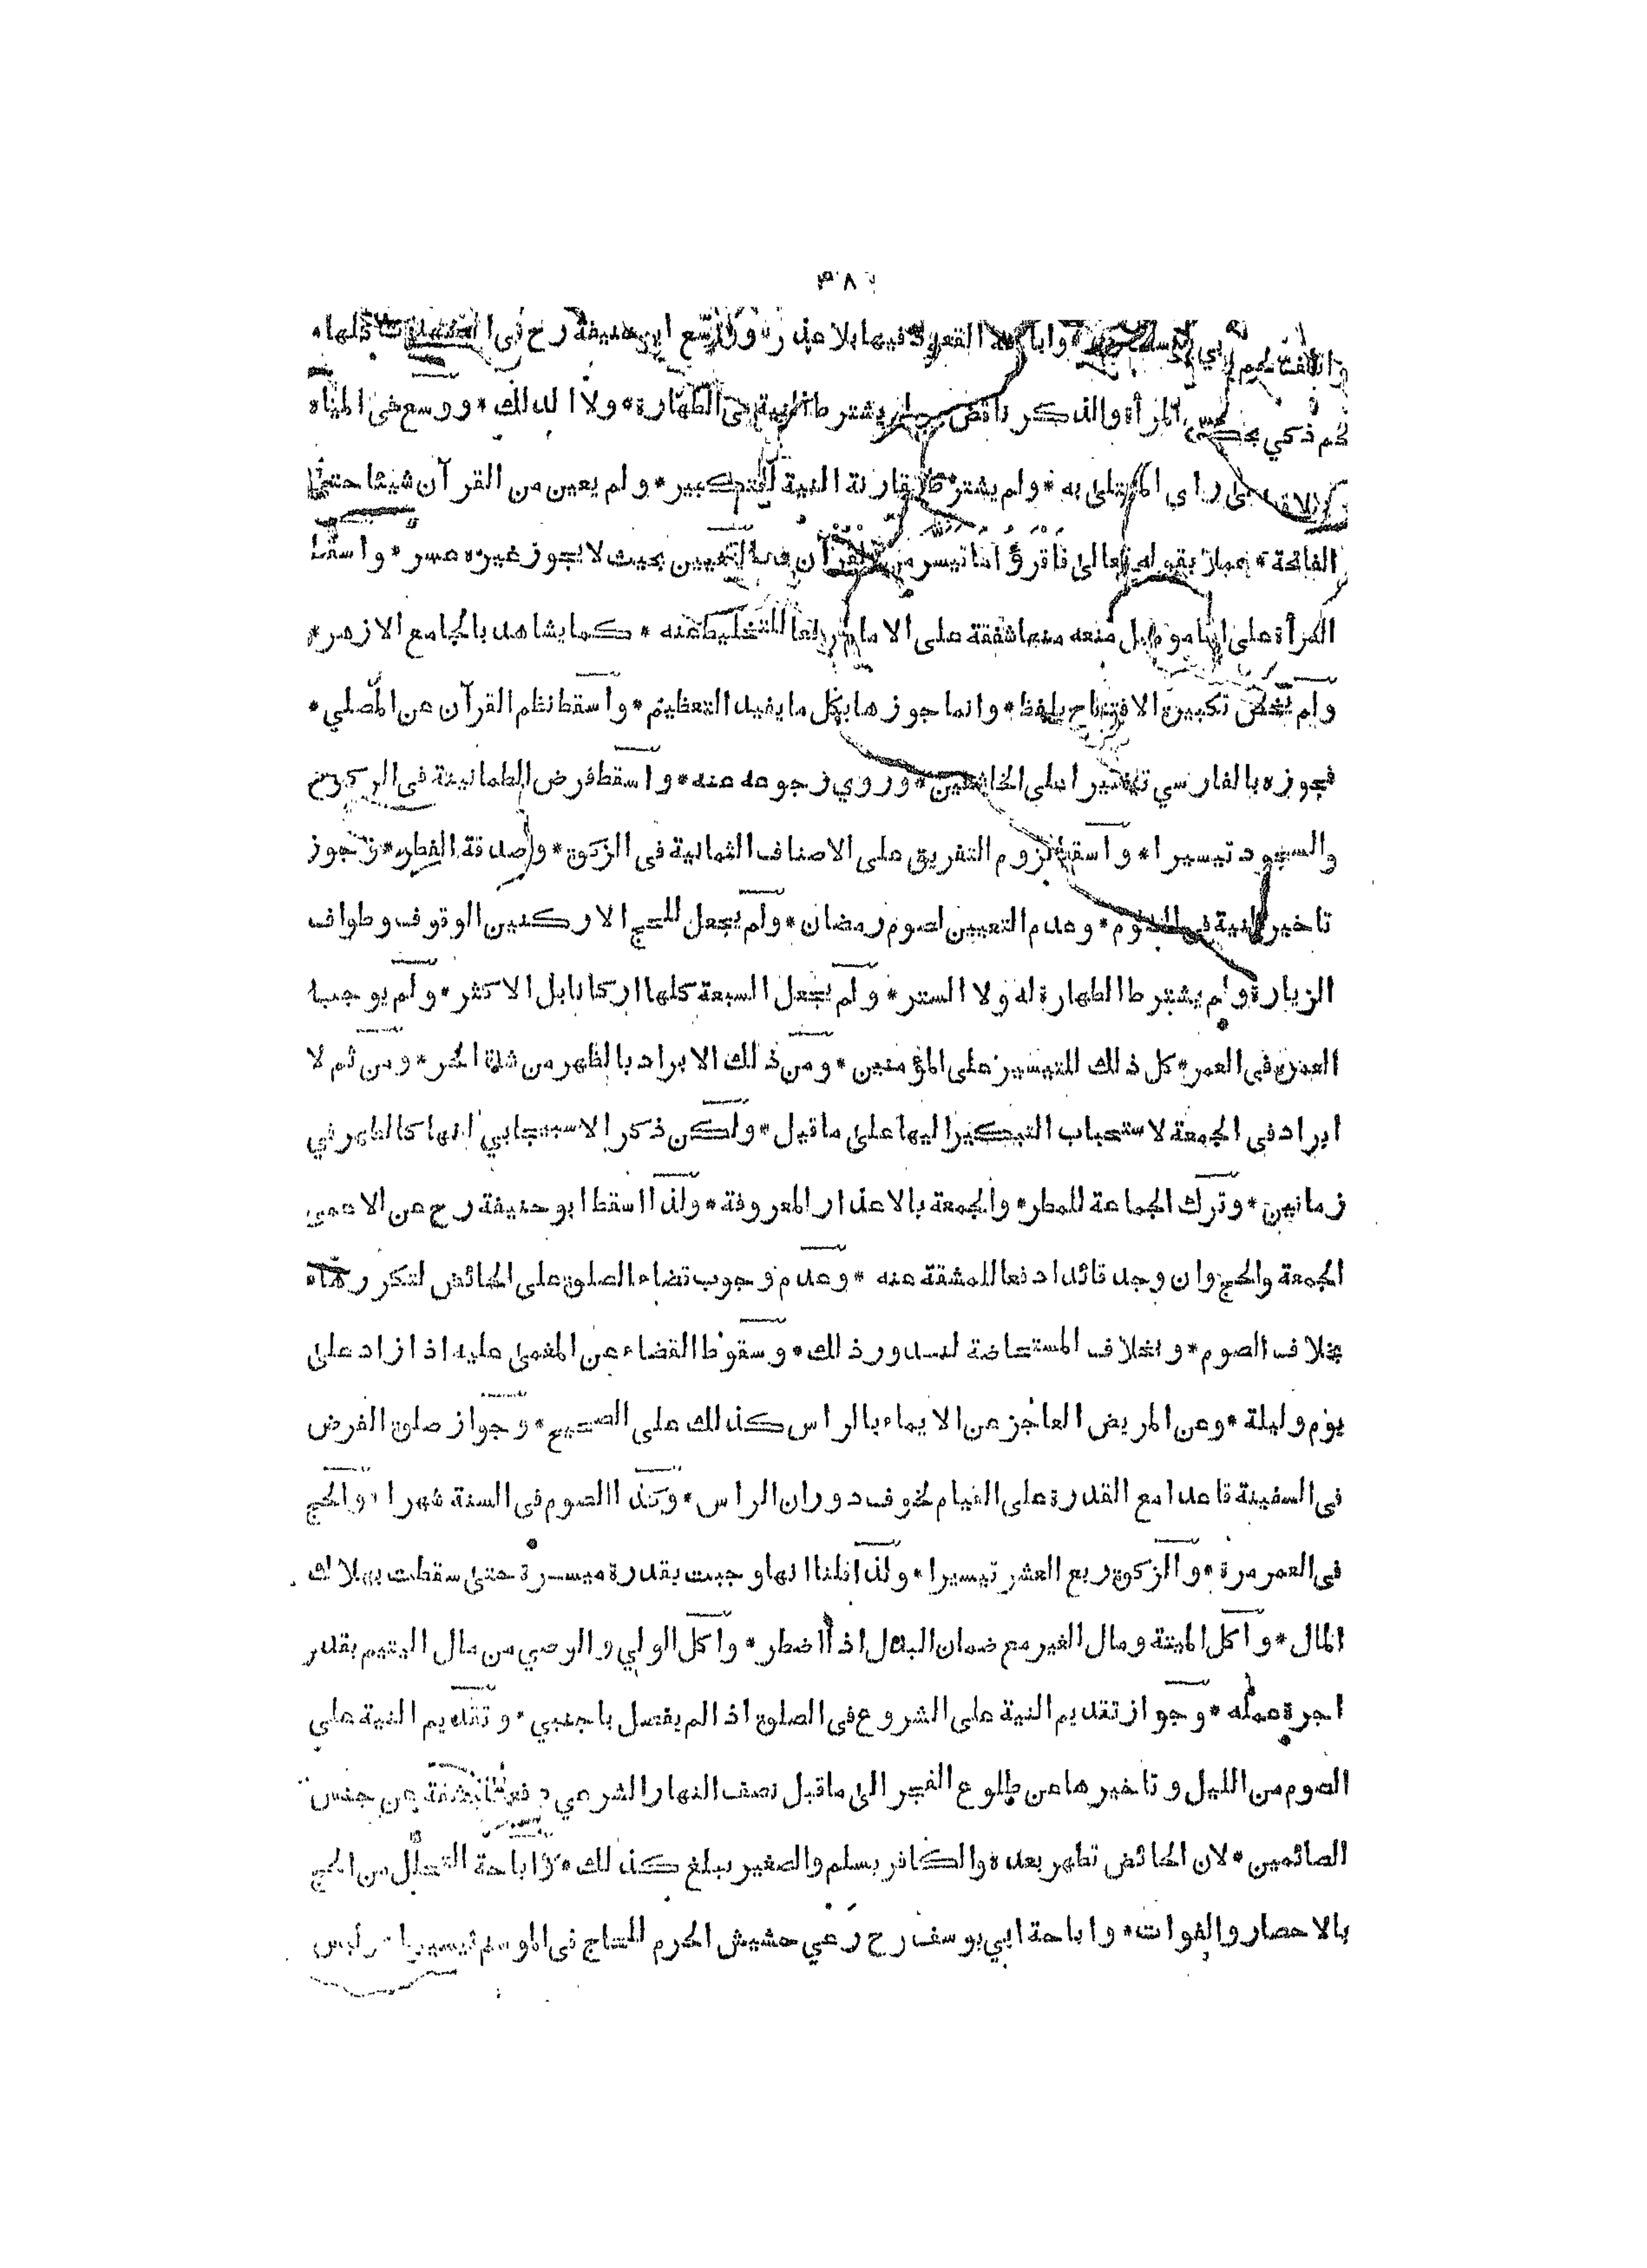 ٣٨
واباحة القعود فيها بلا عذر * ووسع ابو حنيفة رح فى العبادات كلها *
المرأة والذكر ناقض ولم يشترط النية فى الطهارة * ولا الدلك * ووسع فى المياه
الى راي المبتلى به * ولم يشترط مقارنة النية للتكبير * ولم يعين من القرآن شيئا حتى
الفاتحة * عملا بقوله تعالى فَاقْرَؤُ امَا تَيَسَّرَ مِنَ الْقُرْآنِ فـ التعيين بحيث لا يجوز غيره عسر * واسقط
القرأة على المأموم بل منعه منها شفقة على الامام دفعا للتخليط عنه * كما يشاهد بالجامع الازهر *
ولم يخص تكبيرة الافتتاح بلفظ * وانما جوزها بكل ما يفيد التعظيم * واسقط نظم القرآن عن المصلي *
فجوزه بالفارسي تيسيرا على الخاشعين * وروي رجوعه عنه * واسقط فرض الطمانينة فى الركوع
والسجود تيسيرا * واسقط لزوم التفريق على الاصناف الثمانية فى الزكوة * وصدقة الفطر * وجوز
تاخير النية فى الصوم * وعدم التعيين لصوم رمضان * ولم يجعل للحج الا ركنين الوقوف وطواف
الزيارة ولم يشترط الطهارة له ولا الستر * ولم يجعل السبعة كلها اركانا بل الاكثر * ولم يوجب
العمرة فى العمر * كل ذلك للتيسير على المؤمنين * ومن ذلك الابراد بالظهر من شدة الحر * ومن ثم لا
ايراد فى الجمعة لاستحباب التبكير اليها على ما قيل * ولكن ذكر الاسبيجابي انها كالظهر في
زمانين * وترك الجماعة للمطر * والجمعة بالاعذار المعروفة * ولذا اسقط ابو حنيفة رح عن الاعمى
الجمعة والحج وان وجد قائدا دفعا للمشقة عنه * وعدم وجوب قضاء الصلوة على الحائض لتكررها
بخلاف الصوم * وبخلاف المستحاضة لندور ذلك * وسقوط القضاء عن المغمى عليه اذا زاد على
يوم وليلة * وعن المريض العاجز عن الايماء بالراس كذلك على الصحيح * وجواز صلوة الفرض
فى السفينة قاعدا مع القدرة على القيام لخوف دوران الراس * وكذا الصوم فى السنة شهرا * والحج
فى العمر مرة * والزكوة ربع العشر تيسيرا * ولذا قلنا انها وجبت بقدرة ميسرة حتى سقطت بهلاك
المال * واكل الميتة ومال الغير مع ضمان البدل اذا اضطر * واكل الولي والوصي من مال اليتيم بقدر
اجرة عمله * وجواز تقديم النية على الشروع فى الصلوة اذا لم يفصل باجنبي * وتقديم النية على
الصوم من الليل وتاخيرها عن طلوع الفجر الى ما قبل نصف النهار الشرعي دفعا للمشقة عن جنس
الصائمين * لان الحائض تطهر بعده والكافر يسلم والصغير يبلغ كذلك * واباحة التحلل من الحج
بالاحصار والفوات * واباحة ابي يوسف رح رعي حشيش الحرم للحاج فى الموسم تيسيرا * ولبس